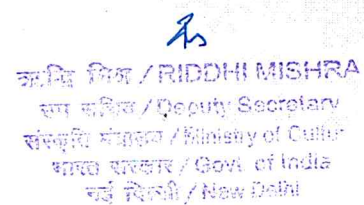 ऋद्धि मिश्रा / RIDDHI MISHRA
उप सचिव / Deputy Secretary
संस्कृति मंत्रालय / Ministry of Cultur
भारत सरकार / Govt. of India
नई दिल्ली / New Delhi